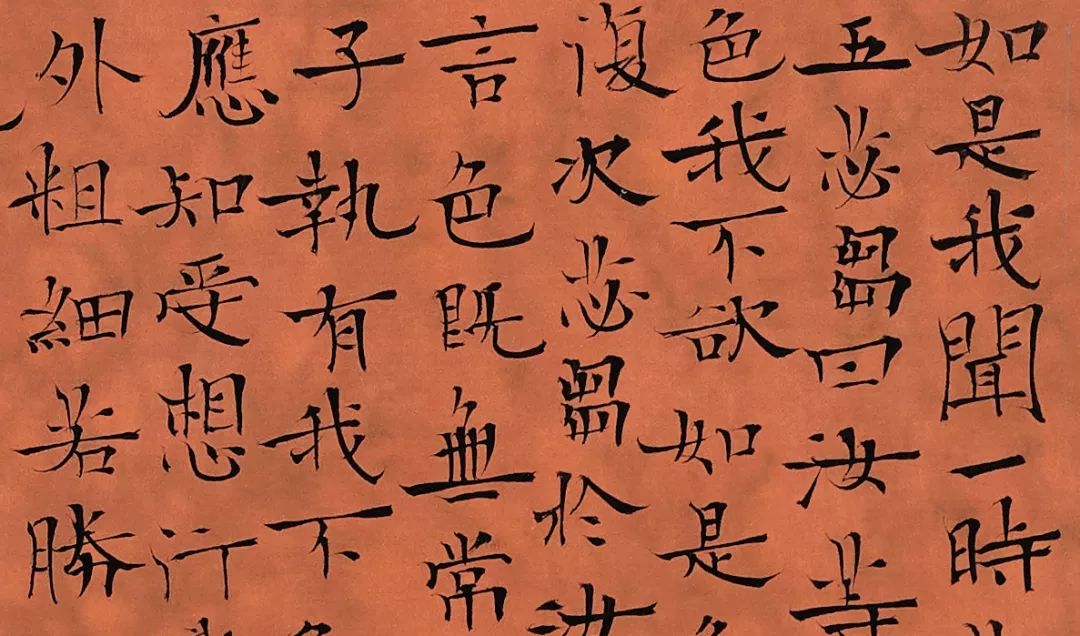 如是我聞一時
五苾芻曰汝等
色我不欲如是
復次苾芻於汝
言色既無常
子執有我不
應知受想行
外粗細若勝